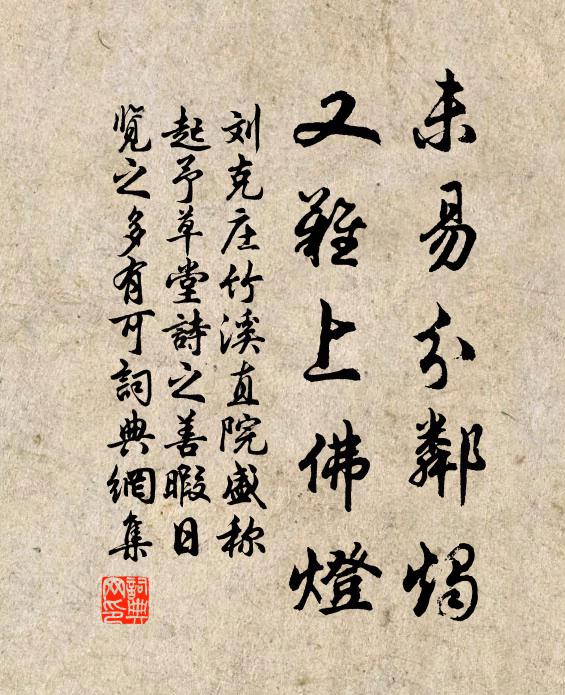 未易分鄰燭
又難上佛燈
刘克庄竹溪直院盛称
起予草堂詩之善暇日
览之多有可詞典網集
詞典網印